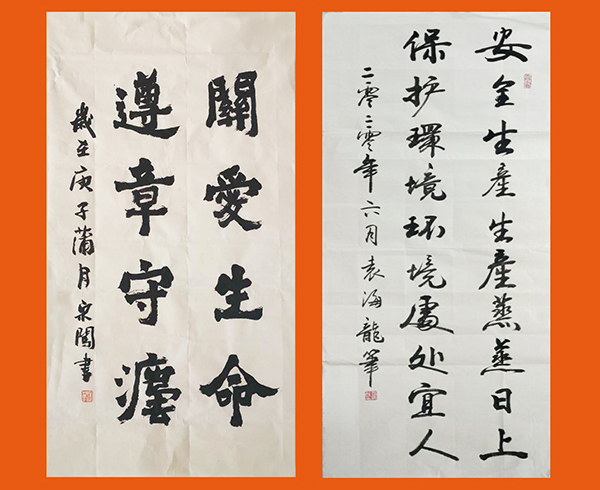 安全生產生產蒸蒸日上
保护環境环境處处宜人
二零二零年六月袁海龍筆
關愛生命
遵章守灋
歲庚子蒲月書